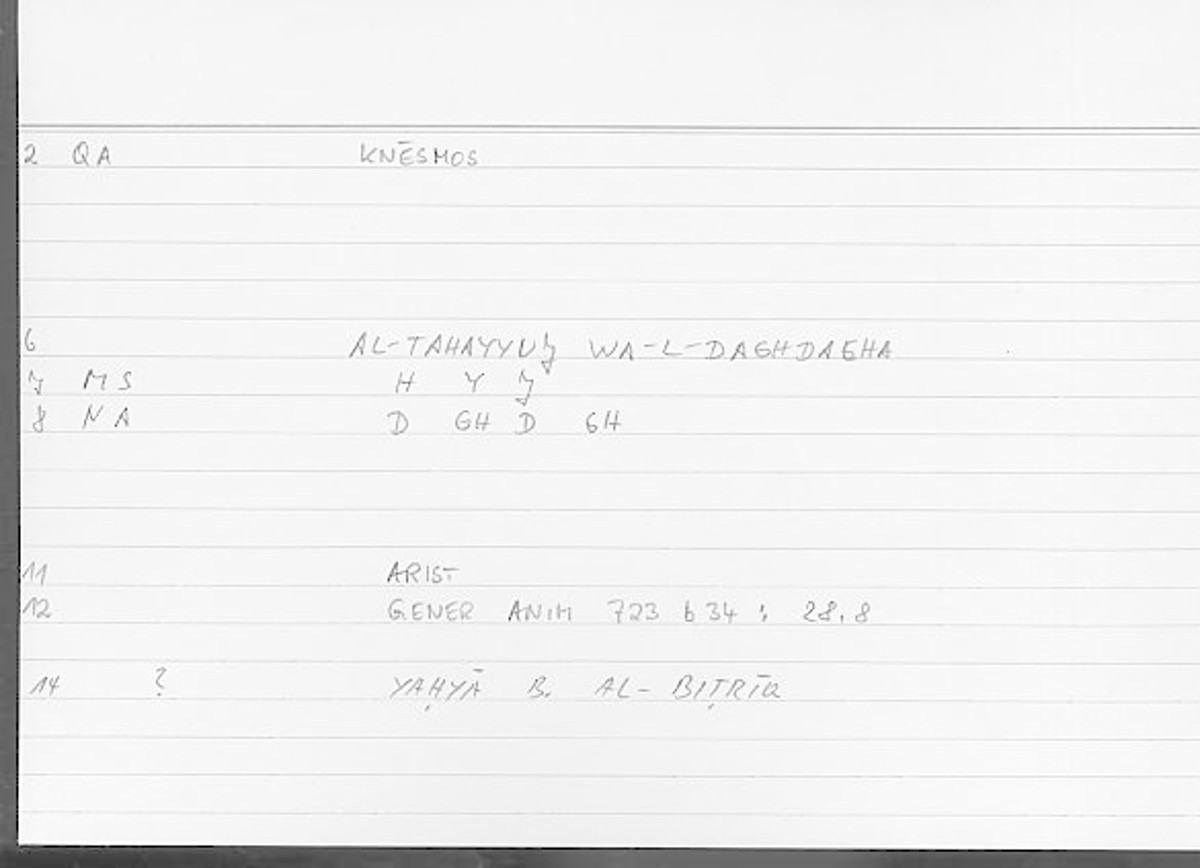 2 QA KNĒSMOS
6 AL-TAHAYYUJ WA-L-DAGHDAGHA
7 MS H Y J
8 NA D GH D GH
11 ARIST
12 GENER ANIM 723 b 34 ; 28.8
14 ? YAḤYĀ B. AL-BIṬRĪQ